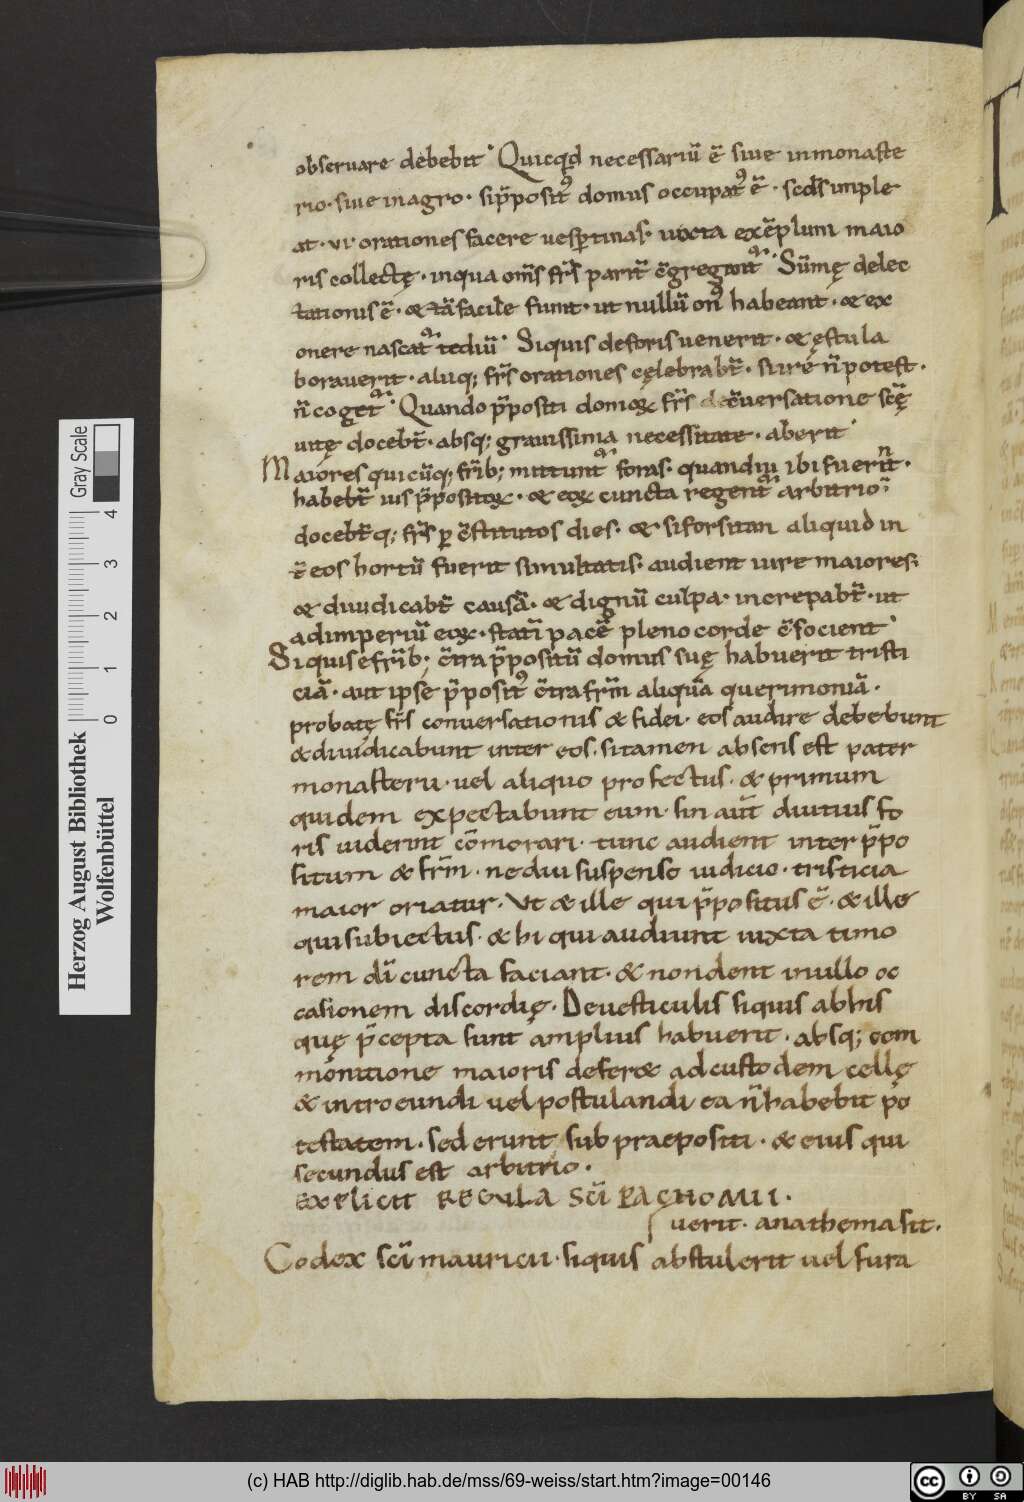 obseruare debebit· Quicqͥd necessariū ē̆ siue inmonaste
rio· siue inagro· sip̄posit᷒ domus occupat᷒ ē· sed simple
at· ui· orationes facere uesp̱tinas· iuxta exēplum maio
ris collectę· inqua om̄s fr̄s parit̄ c̄gregant᷒· Sūmę delec
tationis ē· & tā facile fiunt· ut nullū on᷒ habeant· & ex
onere nascat᷒ tediū· Siquis deforis uenerit· & ęstu la
borauerit· aliiq; fr̄s orationes cęlebrabt̄· si uire n̄ potest·
n̄ coget᷒· Quando p̄positi domoꝝ fr̄s de c̄uersatione scę̄
uitę docebt̄· absq; grauissima necessitate· aberit
Maiores quicūq; fr̄ib; mittunt᷒ foras· quandiu ibi fuerīt·
habebt̄ ius p̄positoꝝ· & eoꝝ cuncta regent᷒ arbitrio·
docebt̄q; fr̄s ꝑ c̄stitutos dies· & siforsitan aliquid in
t̄ eos hortū fuerit simultatis· audient uire maiores·
& diiudicabt̄ causā· & dignū culpa· increpabt̄· ut
adimperiū eoꝝ· statī pacē pleno corde c̄socient·
Siquis e fr̄ib; c̄tra p̄positū domus suę habuerit tristi
ciā· aut ipse p̄posit᷒ c̄tra fr̄m aliquā querimoniā·
probatę fr̄s conuersationis & fidei· eos audire debebunt
& diiudicabunt inter eos· si tamen absens est pater
monasterii· uel aliquo profectus· & primum
quidem expectabunt eum· sin aut̄ diutius fo
ris uiderint cōmorari· tunc audient inter p̄po
situm & fr̄m· ne diu suspenso iudicio· tristicia
maior oriatur· Ut & ille qui p̄positus ē· & ille
qui subiectus· & hi qui audiunt iuxta timo
rem dī cuncta faciant· & non dent inullo oc
casionem discordię· De uesticulis siquis ab his
quę p̄cepta sunt amplius habuerit· absq; com
monitione maioris defer& ad custodem cellę
& intro eundi uel postulandi ea n̄ habebit po
testatem· sed erunt sub praepositi· & eius qui
secundus est arbitrio·
EXPLICIT REGULA SCI PACHOMII·
uerit· anathema sit·
Codex sci mauricii· siquis abstulerit uel fura
Herzog August Bibliothek
Wolfenbüttel
Gray Scale
0 1 2 3 4
(c) HAB http://diglib.hab.de/mss/69-weiss/start.htm?image=00146
cc BY SA